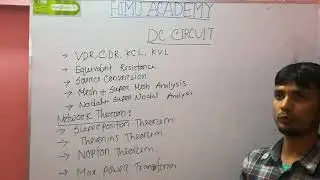 HIMU ACADEMY
DC CIRCUIT
→ VDR, CDR, KCL, KVL
→ Equivalent Resistance
→ Source Conversion
→ Mesh & Super Mesh Analysis
→ Nodal & Super Nodal Analysis
Network Theorem:
→ Superposition Theorem
→ Thevenins Theorem
→ Norton Theorem
→ Max power Transform